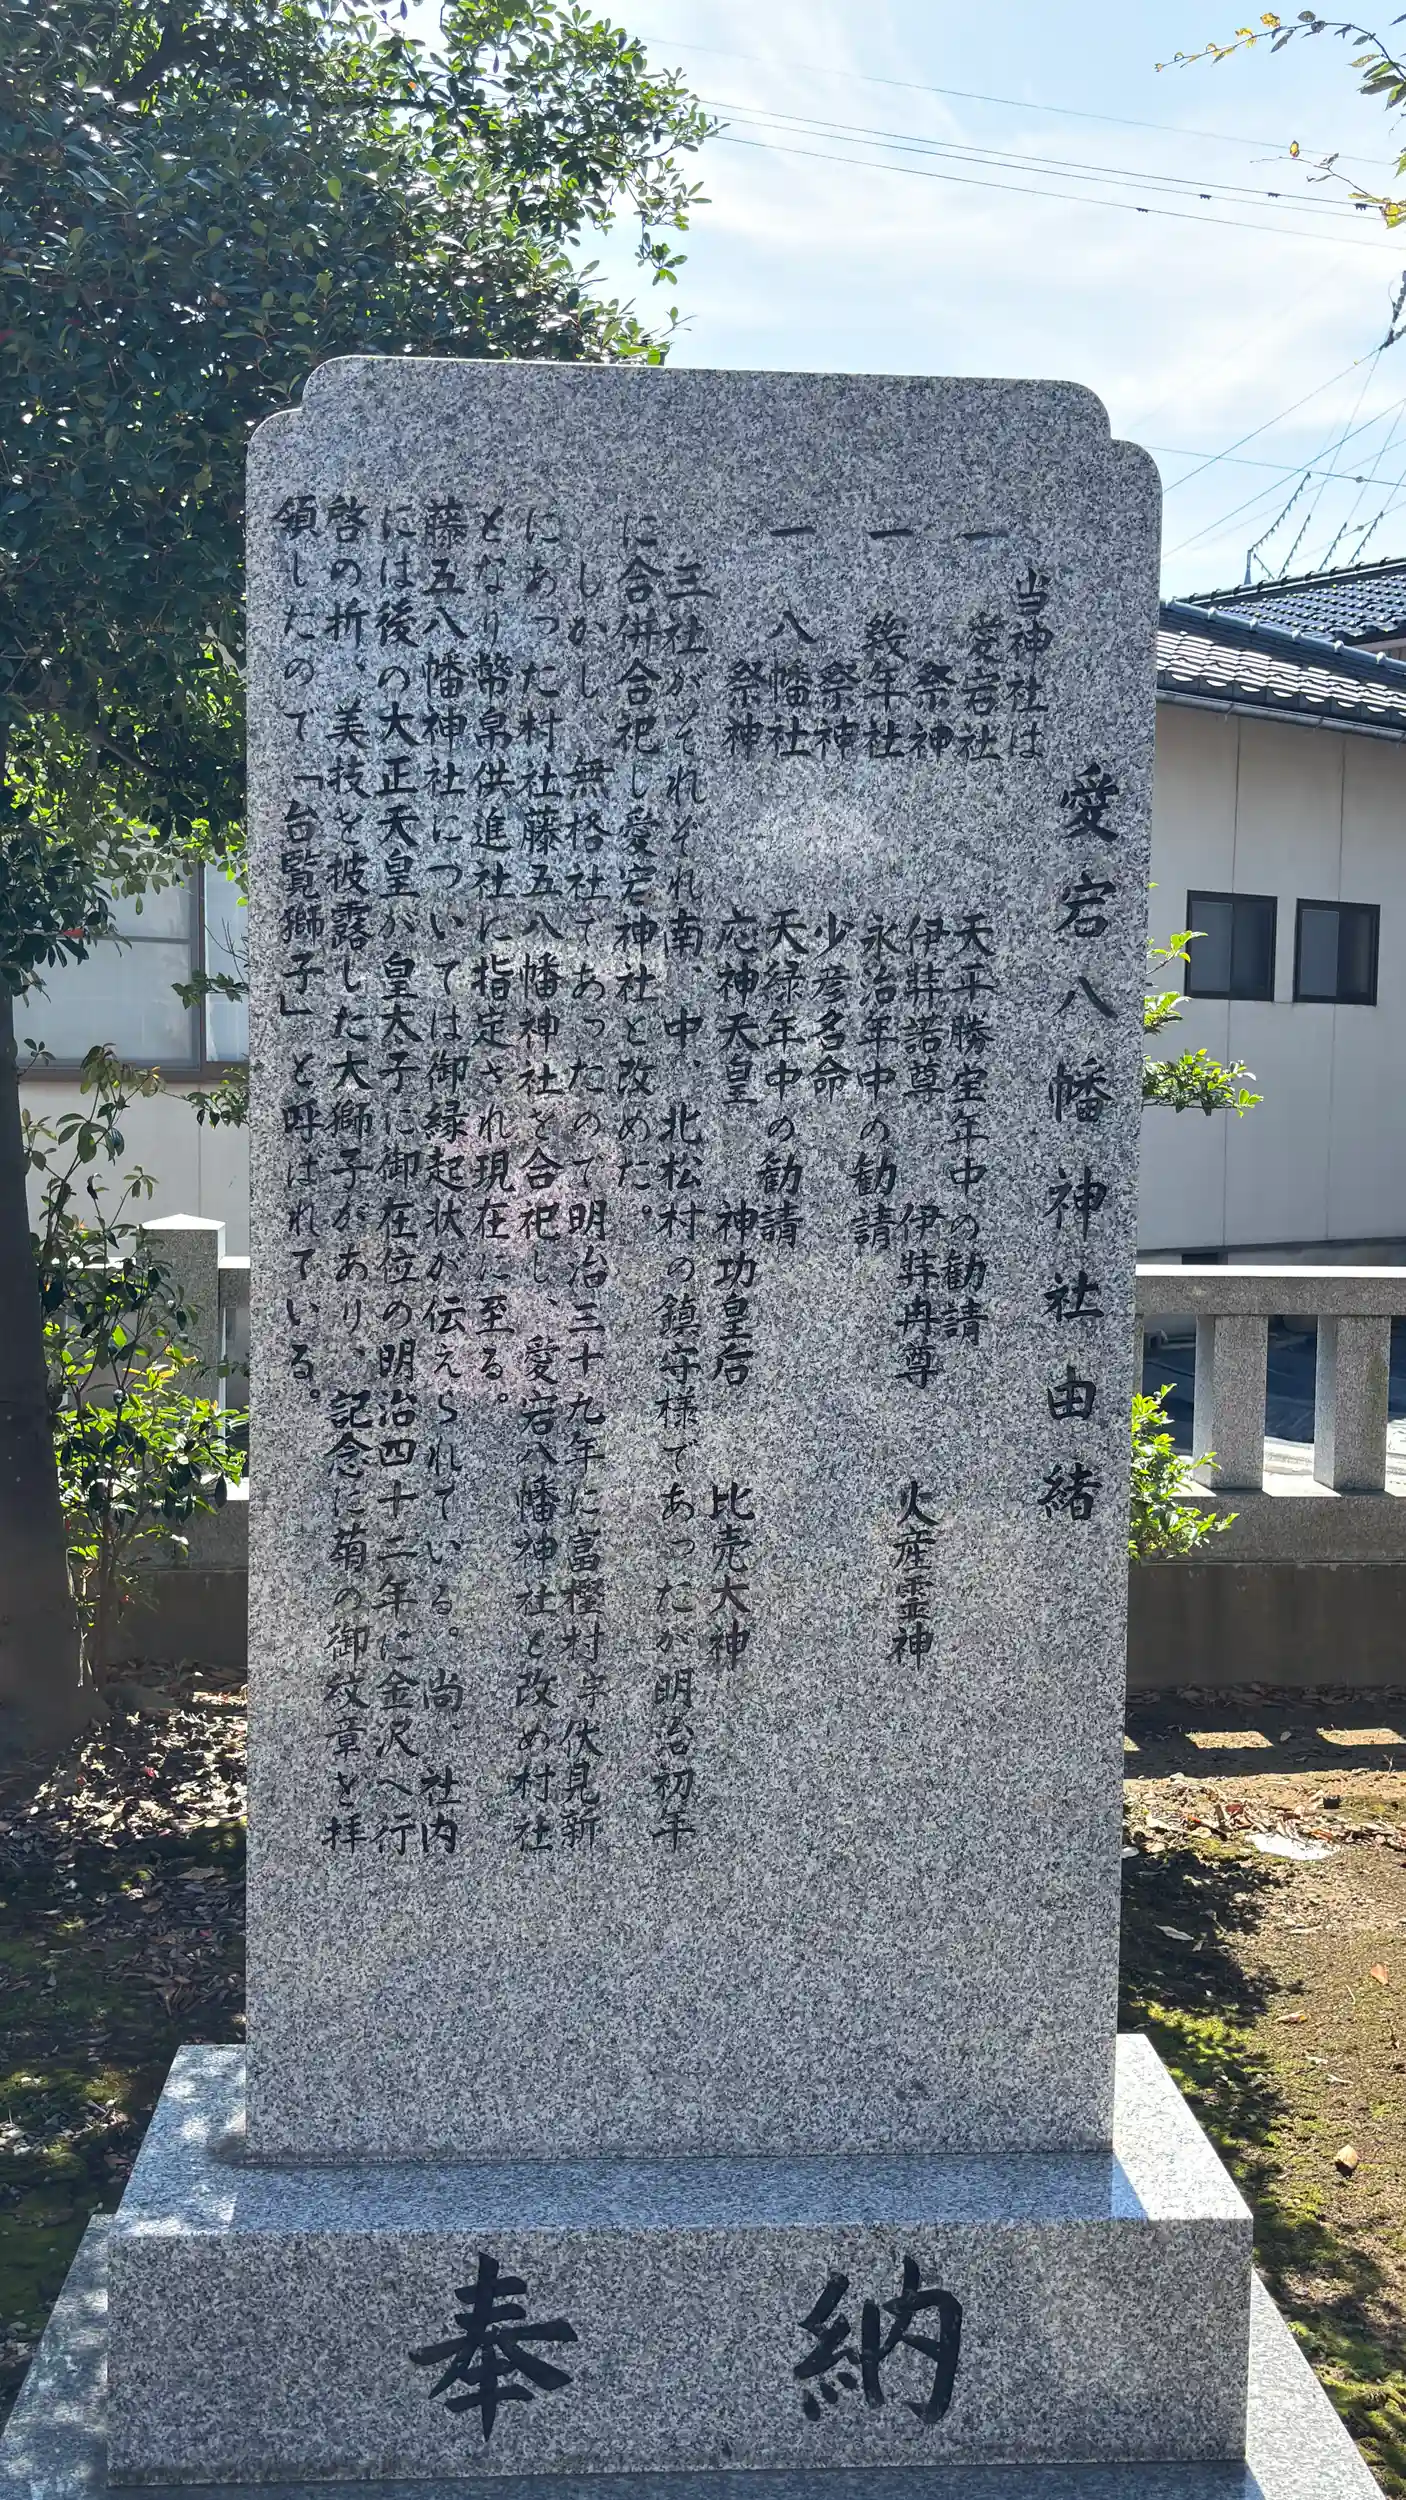 愛宕八幡神社由緒
当神社は
一 愛宕社 天平勝宝年中の勧請
祭神 伊弉諾尊 伊弉冉尊 火産霊神
一 幾年社 永治年中の勧請
祭神 少彦名命
一 八幡社 天緑年中の勧請
祭神 応神天皇 神功皇后 比売大神
三社がそれぞれ南、中、北松村の鎮守様であったが明治初年
に合併合祀し愛宕神社と改めた。
しかし、無格社であったので明治三十九年に富樫村字伏見新
にあった村社藤五八幡神社を合祀し、愛宕八幡神社と改め村社
となり幣帛供進社に指定され現在に至る。
藤五八幡神社については御縁起状が伝えられている。尚、社内
には後の大正天皇が皇太子に御在位の明治四十二年に金沢へ行
啓の折、美技を披露した大獅子があり、記念に菊の御紋章を拝
領したので「台覧獅子」と呼ばれている。
奉納